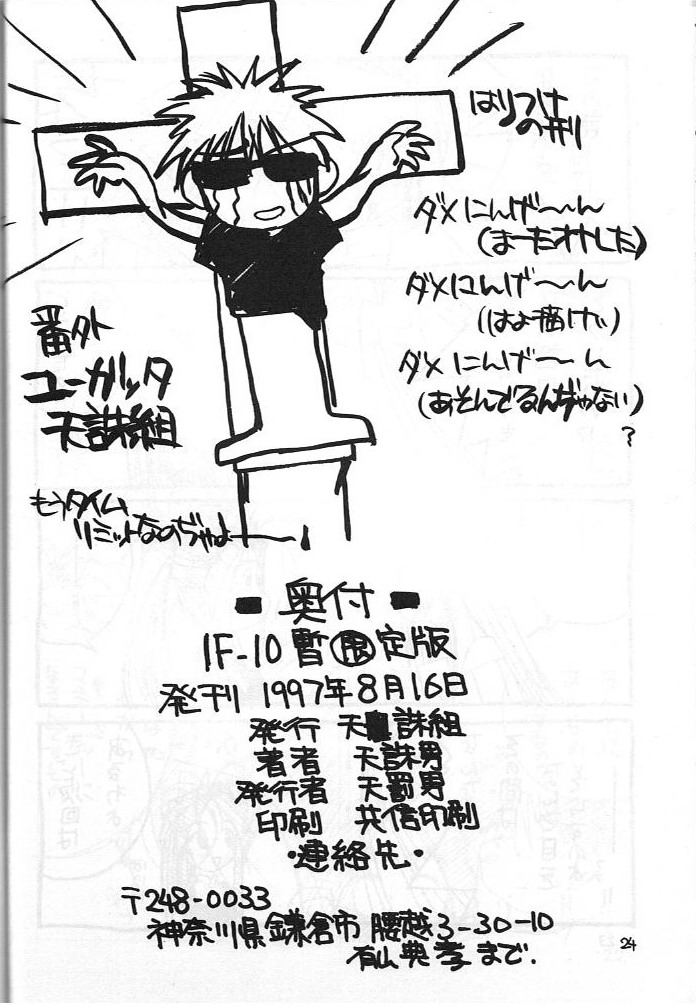 はりつけ
の刑
ダメにんげ〜〜ん
(まーたオトした)
ダメにんげ〜〜ん
(はよ描けい)
ダメにんげ〜〜ん
(あそんでるんぢゃない)
?
番外
ユーガッタ
天誅組
もうタイム
リミットなのぢゃよー!
奥付
IF-10 暫限定版
発刊 1997年8月16日
発行 天誅組
著者 天誅男
発行者 天罰男
印刷 共信印刷
・連絡先・
〒248-0033
神奈川県鎌倉市腰越3-30-10
有山典孝まで.
24